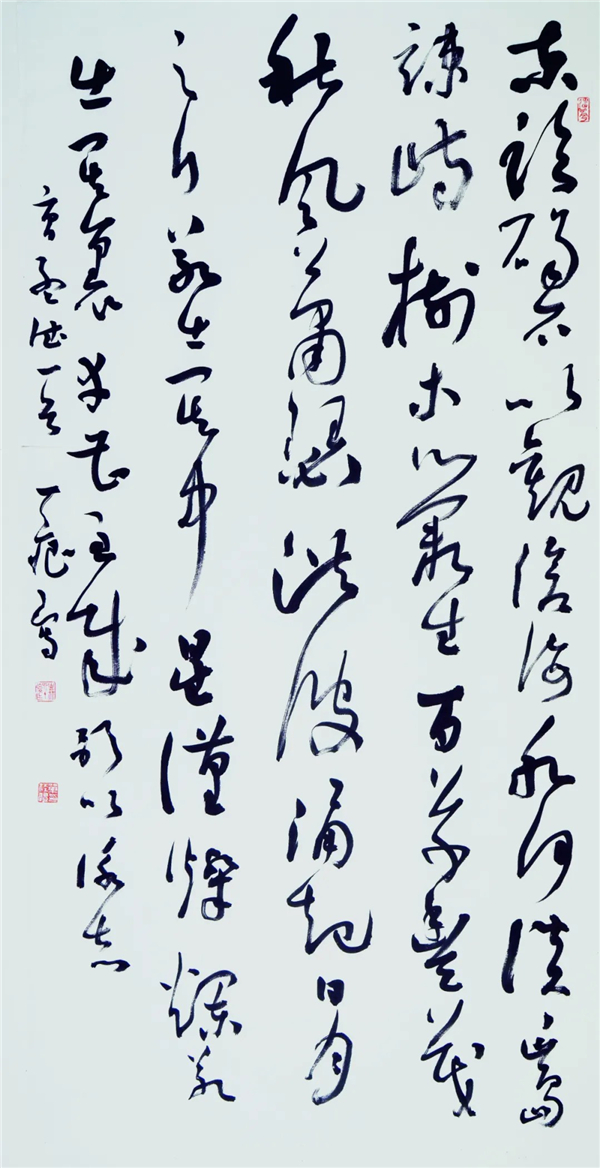 東臨碣石以觀滄海水何澹々山島
竦峙樹木叢生百草豐茂
秋風蕭瑟洪波涌起日月
之行若出其中星漢燦爛若
出其裏幸甚至哉歌以詠志
曹孟德一首 寫